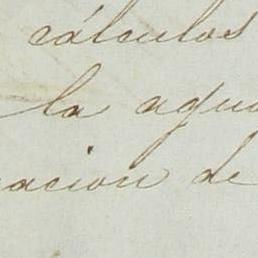 cálculos
la agua
acion de